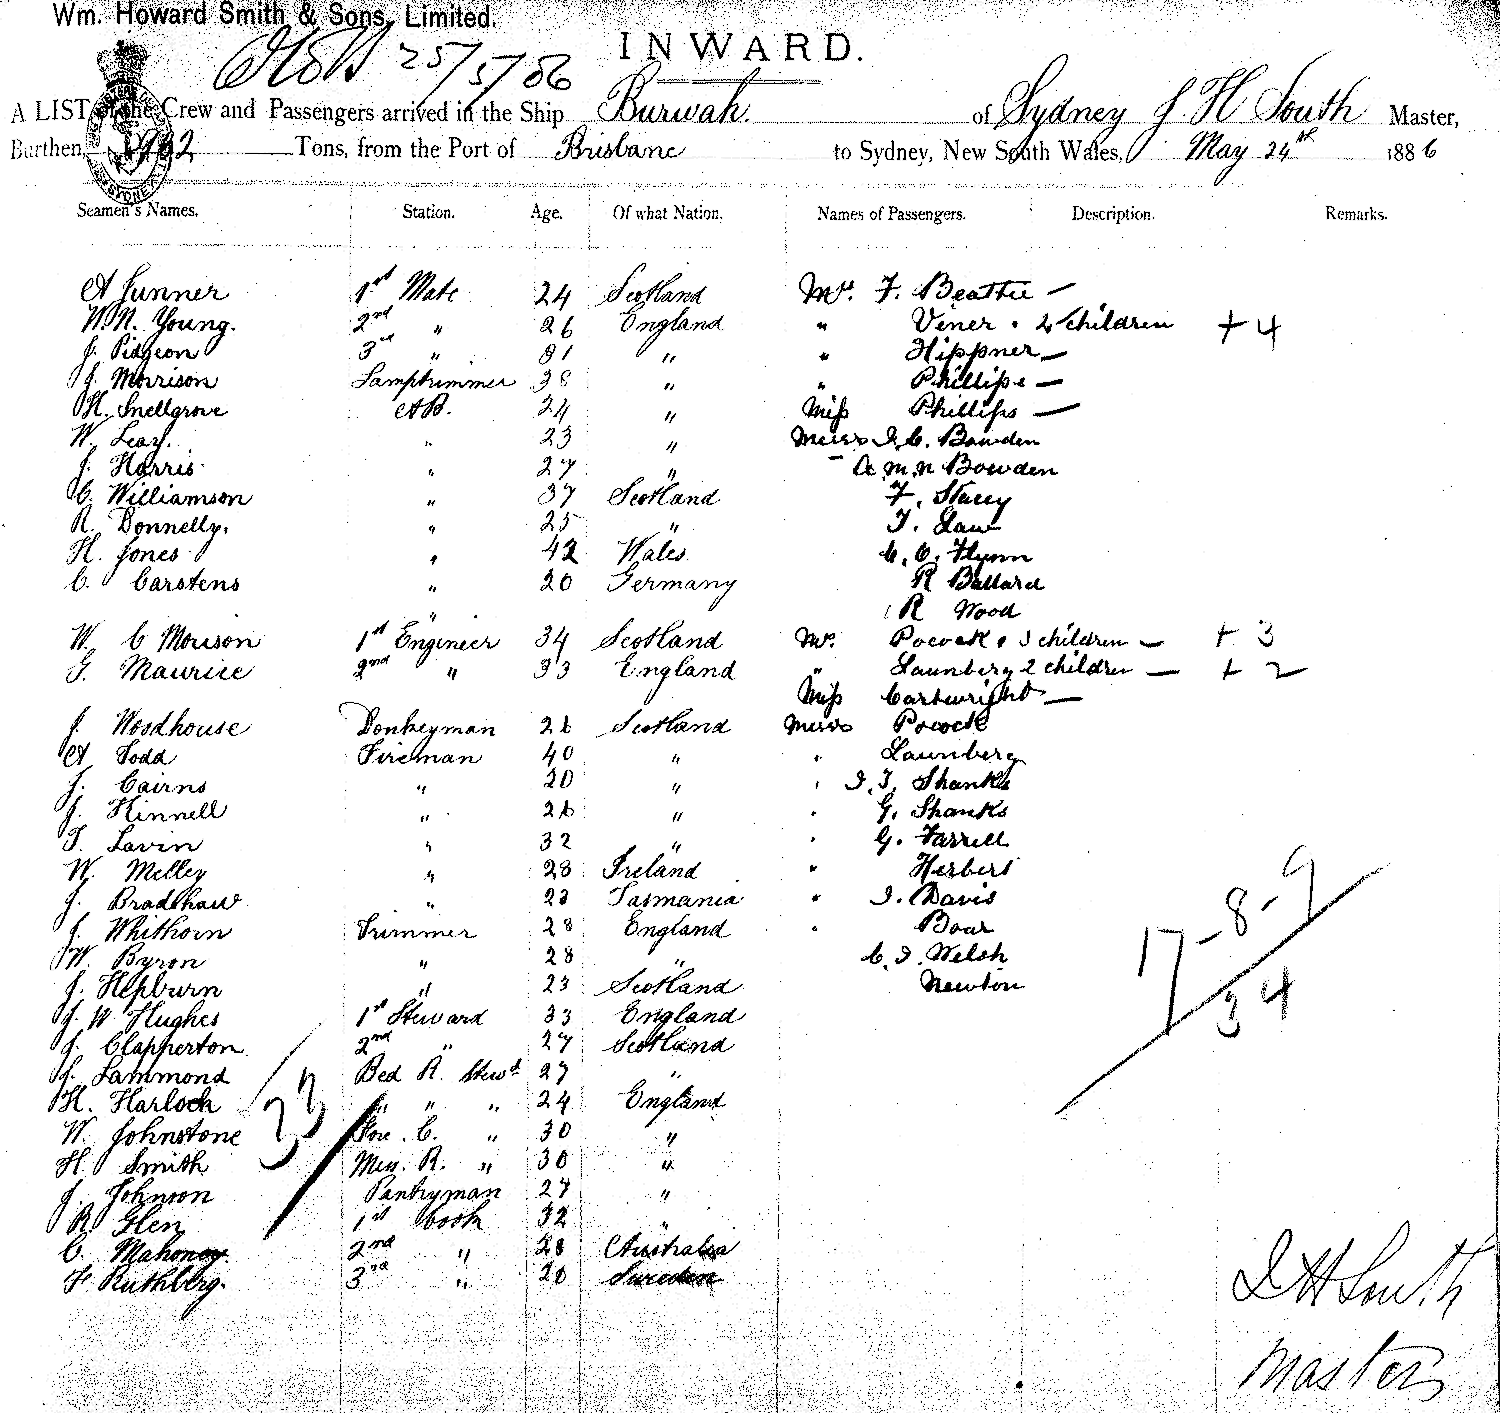 Wm. Howard Smith & Sons, Limited.
25/5/86
INWARD.
A LIST of the Crew and Passengers arrived in the Ship Burwah. of Sydney J H South Master,
Burthen, Tons, from the Port of Brisbane to Sydney, New South Wales, May 24th 1886
Seamen's Names. Station. Age. Of what Nation. Names of Passengers. Description. Remarks.
A Lunner 1st Mate 24 Scotland Mrs. F. Beattie —
W.N. Young. 2nd " 26 England " Viner . 4 children + 4
J. Pidgeon 3rd " 31 " " Hippner —
J. Morrison Lamptrimmer 38 " " Phillips —
H. Snellgrove AB. 24 " Miss Phillips —
W. Leay. " 23 " Messrs J. C. Bowden
J. Harris " 27 " A M. N Bowden
C. Williamson " 37 Scotland F. Stacey
R. Donnelly. " 25 " T. Law
H. Jones " 42 Wales C. C. Flynn
C. Carstens " 20 Germany R Ballard
" R Wood
W C Morison 1st Engineer 34 Scotland Mrs. Pocock & 3 children — + 3
G. Maurice 2nd " 33 England " Launberg 2 children — + 2
Miss Cartwright —
J. Woodhouse Donkeyman 26 Scotland Messrs Pocock
A Todd Fireman 40 " " Launberg
J. Cairns " 20 " " J. T. Shanks
J. Kinnell " 26 " " G. Shanks
T. Lavin " 32 " " G. Farrell
W. Melley " 28 Ireland " Herbert
J. Bradshaw " 23 Tasmania " J. Davis
J. Whithorn Trimmer 28 England " Bour
W. Byron " 28 " C. J. Welsh
J. Hepburn " 23 Scotland Newton
J. W Hughes 1st Steward 33 England
J. Clapperton 2nd " 27 Scotland
J. Lammond Bed R. Stewd 27 "
H. Harloch " " " 24 England
W. Johnstone Fore. C. " 30 "
H. Smith Mess. R. " 30 "
J. Johnson Pantryman 27 "
R Glen 1st Cook 32 "
C. Mahoney 2nd " 28 Australia
F Ruthberg. 3rd " 20 Sweden
17-8-9
34
33
J H South
Master